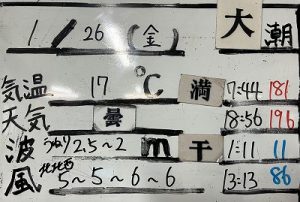 1/26(金) 大潮
気温 17℃ 満 7:44 181
天気 曇 18:56 196
波 うねり2.5~2m 干 1:11 11
風 北北西 5~5~6~6 13:13 86